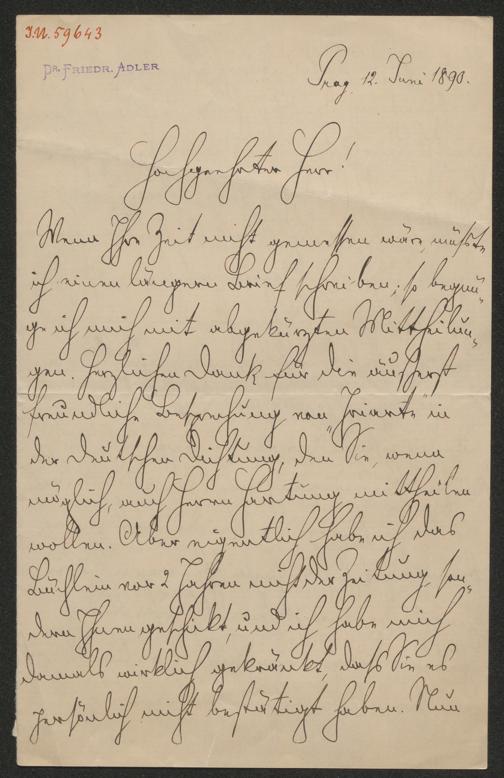 I.N. 59643
DR. FRIEDR. ADLER
Prag 12. Juni 1890.
Hochgeehrter Herr!
Wenn Ihre Zeit nicht gemessen wäre, müßte
ich einen längern Brief schreiben; so begnü-
ge ich mich mit abgekürzten Mittheilun-
gen. Herzlichen Dank für die äußerst
freundliche Besprechung von "Iriarte" in
der deutschen Dichtung, den Sie, wenn
möglich, auch Herrn Hartung mittheilen
wollen. Aber eigentlich habe ich das
Büchlein vor 2 Jahren nicht der Zeitung son-
dern Ihnen geschickt, und ich habe mich
damals wirklich gekränkt, daß Sie es
persönlich nicht bestätigt haben. Nun